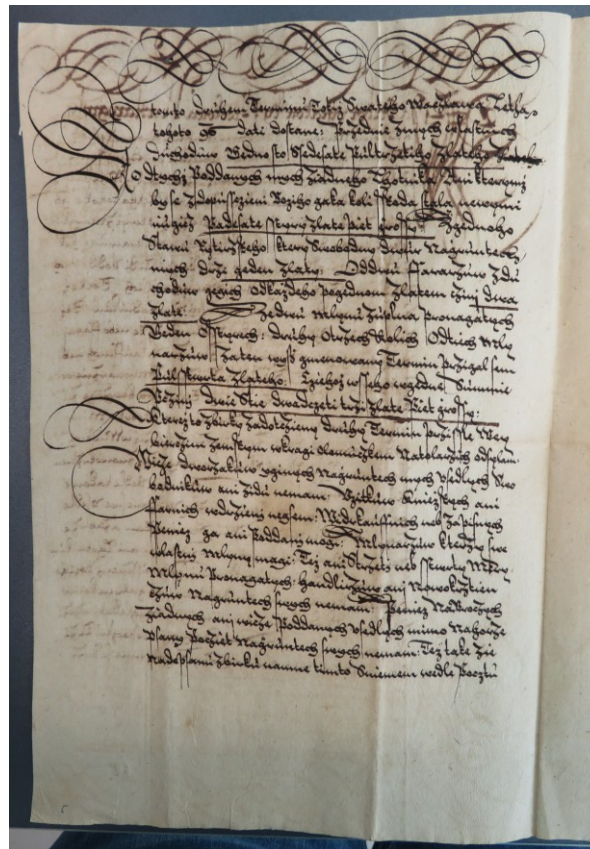 W tomto druhem Terminu Totiž Swateho Waczlawa Letha
tohoto 96 dati dostane: Přzednie zmych wlastnich
Duchoduw Bednosto Ssedesate Pultrzetiho Zlateho
Odtychž Poddanych mych ziadneho Ani kterymž
by se zdopusstieni Božiho gaka koli sskoda stala newymi
niugicz Padesate sstyry Zlate Piet grossu: Zgednoho
Stawu Rytirzskeho, ktery Swobodny Dwur Nagruntech
mych drže geden Zlaty: Oddwu ffararzuw Zdu
choduw gegich Odkazdeho pogednom Zlatem cžinj dwa
Zlate: Zedwu Mlynu Pronagatych
Geden Osstyrech: druhy Otrzech Kolich Odtiech Mly
narzuw Zaten wyss gmenowany Termin Przigal sem
Pulsstwrta Zlateho: Cziehož wsseho wgedne Summie
Biežny dwie Stie dwadczeti trži Zlate Piet grossu:
Kterežto Zbirky Zadotcžieny druhy Termin Wey
bierczim Zemskym wkragi Olomuczkem Odsylam
Wicze dworzakuw yginych Nagruntech mych Usedlych Swo
bodnikuw ani Židu nemam: Užitkuw Kniežskych ani
ffarnich wdrženj negsem: neb Zapisnych
Peniez ga ani Poddanj mogi: Mlynarzuw kterziž swe
wlastnj Mlyny magi: Tež ani Strzeti neb sstwrty Miery
Mlynu Pronagatych: Handlirzuw anj Nowokrztien
cžuw Nagruntech swych nemam: Peniez
Ziadnych anj wicze Poddanych Usedlych mimo Nahorže
Psany Pocžet Nagruntech swych nemam: Tež take Že
Nadepsanu Zbirku namne timto Sniemem wedle Pocztu